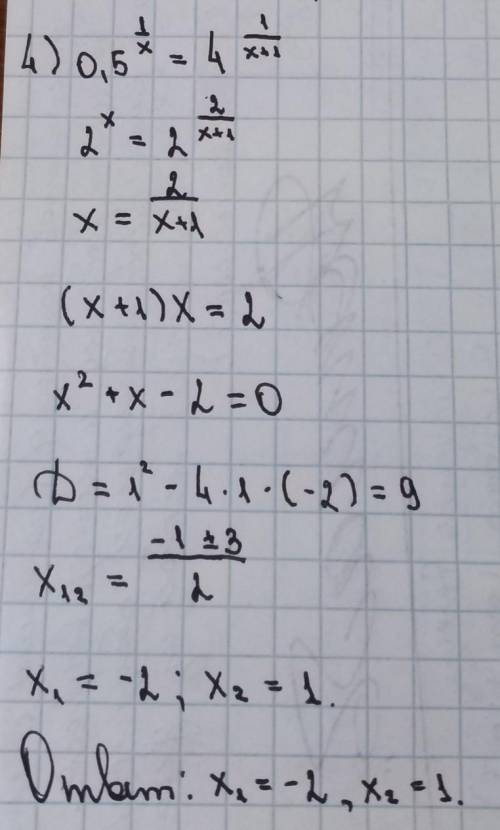 4) 0,5^{\frac{1}{x}} = 4^{\frac{1}{x+1}}
2^{x} = 2^{\frac{2}{x+1}}
x = \frac{2}{x+1}
(x+1)x = 2
x^2 + x - 2 = 0
D = 1^2 - 4 \cdot 1 \cdot (-2) = 9
x_{12} = \frac{-1 \pm 3}{2}
x_1 = -2; x_2 = 1.
Ответ: x_1 = -2, x_2 = 1.